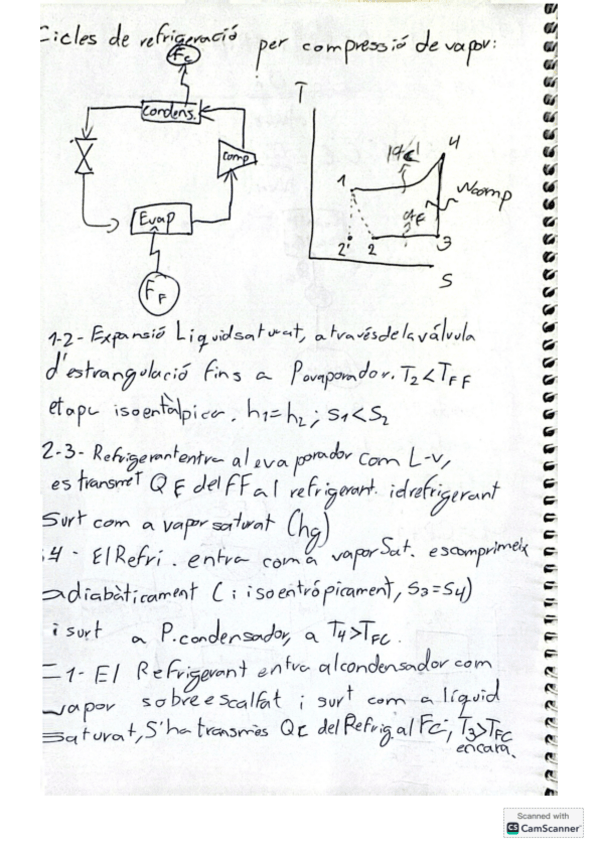 Cicles de refrigeració per compressió de vapor:
Fc
Condens.
Comp
Evap
FF
T
1
4
Wcomp
2'
2
3
S
1-2- Expansió Liquid saturat, a través de la válvula
d'estrangulació fins a Pevaporador. T2<TFF
etapa isoentàlpica. h1=h2 ; s1<s2
2-3- Refrigerant entra al evaporador com L-v,
es transmet QF del FF al refrigerant. i el refrigerant
surt com a vapor saturat (hg)
4- El Refri. entra com a vapor Sat. es comprimeix
adiabàticament (i isoentrópicament, s3=s4)
i surt a P.condensador, a T4>TFC.
1- El Refrigerant entra al condensador com
vapor sobreescalfat i surt com a líquid
saturat, S'ha transmès QC del Refrig. al Fc; T3>TFC
encara.
Scanned with
CS CamScanner